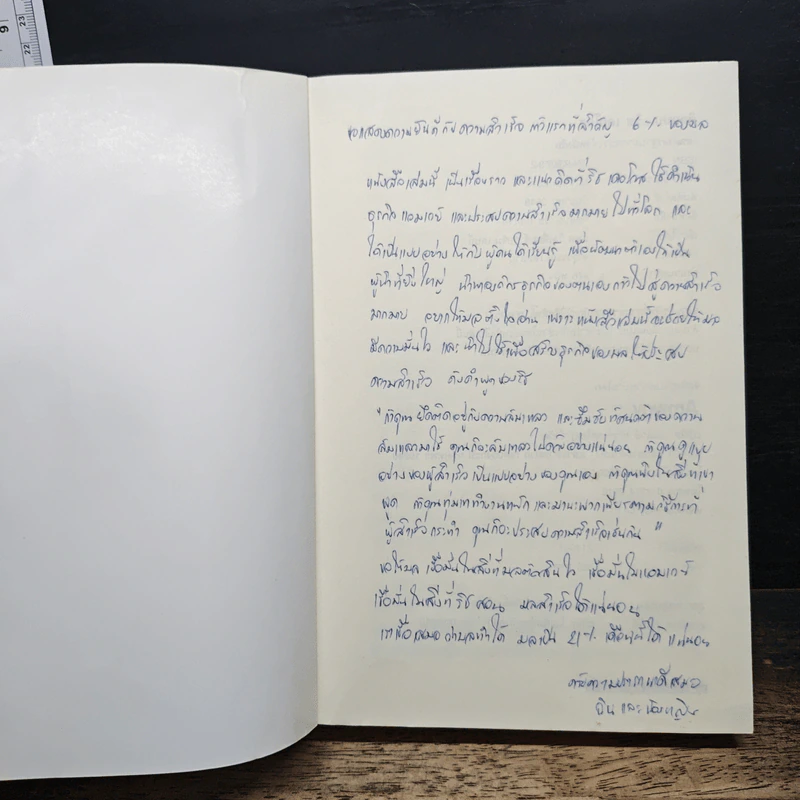 ขอแสดงความยินดีกับความสำเร็จ ก้าวแรกที่สำคัญ 6% ของมล
หนังสือเล่มนี้ เป็นเรื่องราว และแนวคิดที่ ริช เดอโวส ใช้ดำเนิน
ธุรกิจแอมเวย์ และประสบความสำเร็จมากมาย ไปทั่วโลก และ
ได้เป็นแบบอย่าง ให้กับผู้คนได้เรียนรู้ เพื่อพัฒนาตัวเองให้เป็น
ผู้นำที่ยิ่งใหญ่ นำพาองค์กรธุรกิจของตนเองก้าวไปสู่ความสำเร็จ
มากมาย อยากให้มลตั้งใจอ่าน เพราะหนังสือเล่มนี้จะช่วยให้มล
มีความมั่นใจ และ นำไปใช้เพื่อสร้างธุรกิจของมลให้ประสบ
ความสำเร็จ ดังคำพูดของริช
"ถ้าคุณยึดติดอยู่กับความล้มเหลว และซึมซับทัศนคติของความ
ล้มเหลวมาใช้ คุณก็จะล้มเหลวไปด้วยอย่างแน่นอน ถ้าคุณดูแบบ
อย่างของผู้สำเร็จเป็นแบบอย่างของคุณเอง ถ้าคุณฟังในสิ่งที่เขา
พูด ถ้าคุณทุ่มเททำงานหนักและมานะพากเพียรตามวิธีการที่
ผู้สำเร็จกระทำ คุณก็จะประสบความสำเร็จเช่นกัน"
ขอให้มล เชื่อมั่นในสิ่งที่มลตัดสินใจ เชื่อมั่นในแอมเวย์
เชื่อมั่นในสิ่งที่ริชสอน มลสำเร็จได้แน่นอน
เราเชื่อเสมอว่ามลทำได้ มลเป็น 21% เดือนนี้ได้ แน่นอน
ด้วยความปรารถนาดีเสมอ
และ